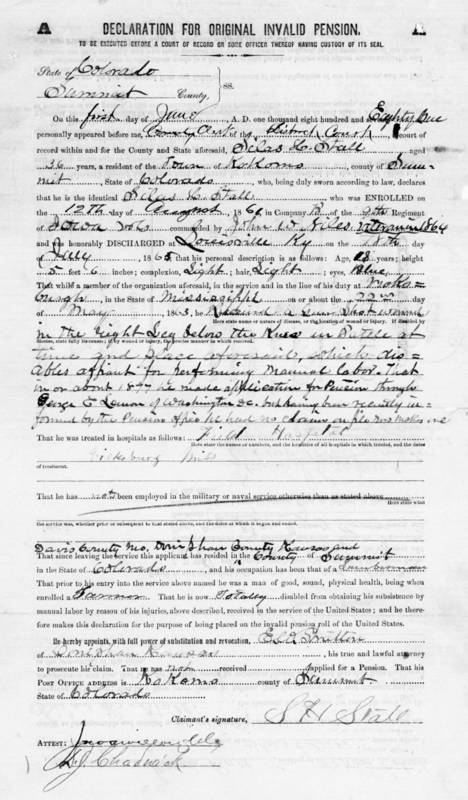 A DECLARATION FOR ORIGINAL INVALID PENSION. A
TO BE EXECUTED BEFORE A COURT OF RECORD OR SOME OFFICER THEREOF HAVING CUSTODY OF ITS SEAL.
State of Colorado
Summit County, } SS.
On this first day of June A. D. one thousand eight hundred and Eighty One
personally appeared before me, of the District Court a court of
record within and for the County and State aforesaid, Silas H. Stall aged
36 years, a resident of the Town of Kokomo, county of Sum-
mit, State of Colorado who, being duly sworn according to law, declares
that he is the identical Silas H. Stall who was ENROLLED on
the 12th day of August 1861 in Company B of the 9th Regiment
of Iowa Vols commanded by John W. Niles, Veteran in 1864
and honorably DISCHARGED at Louisville Ky on the 18th day
of July 1865 that his personal description is as follows: Age, 18 years; height
5 feet 6 inches; complexion, Light; hair, Light; eyes, Blue
That while a member of the organization aforesaid, in the service and in the line of his duty at
in the State of Mississippi on or about the 22nd day
of May 1863, he received a Gun Shot wound
in the right Leg below the Knee in Battle at
time and place aforesaid, which dis-
ables affiant for performing manual labor. That
in or about 1877 he made application for Pension through
George E Lemon of Washington DC. but having been recently in-
formed by the Pension Office he had no claim on file now makes
That he was treated in hospitals as follows: Field Hospital
Vicksburg Miss
That he has not been employed in the military or naval service otherwise than as stated above
the service was, whether prior or subsequent to that stated above, and the dates at which it began and ended.
Davis County Mo. Doniphan County Kansas and
That since leaving the service this applicant has resided in the County of Summit
in the State of Colorado, and his occupation has been that of a
That prior to his entry into the service above named he was a man of good, sound, physical health, being when
enrolled a Farmer That he is now Totally disabled from obtaining his subsistence by
manual labor by reason of his injuries, above described, received in the service of the United States; and he there-
fore makes this declaration for the purpose of being placed on the invalid pension roll of the United States.
He hereby appoints, with full power of substitution and revocation,
of Doniphan Kansas, his true and lawful attorney
to prosecute his claim. That he has not received applied for a Pension. That his
POST OFFICE ADDRESS is Kokomo county of Summit.
State of Colorado
Claimant's signature, S H Stall
ATTEST:
D. J. Chadwick